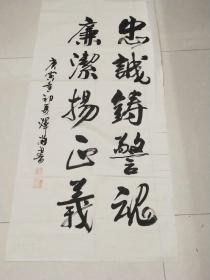 忠誠鑄警魂
廉潔揚正義
庚寅年初夏